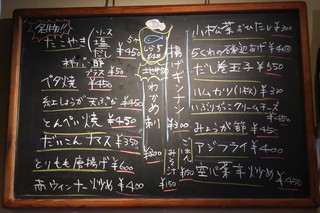 名物!!
たこやき
ソース
塩
だし
¥450
ネギ ポン酢
プラス ¥50
ペタ焼 ¥450
紅しょうが天ぷら ¥450
とんぺい焼 ¥450
だいこんナマス ¥350
とりもも唐揚 ¥600
赤ウィンナー炒め ¥400
しらうお
¥450
わかめ刺
¥300
揚げギンナン
¥300
ごはん
¥150
みそ汁
¥150
小松菜おひたし ¥300
ちくわの磯辺あげ ¥400
だし巻玉子 ¥450
ハムカツ(1枚) ¥300
いぶりがっこクリームチーズ ¥450
みょうが酢 ¥450
アジフライ ¥400
空心菜辛炒め ¥450